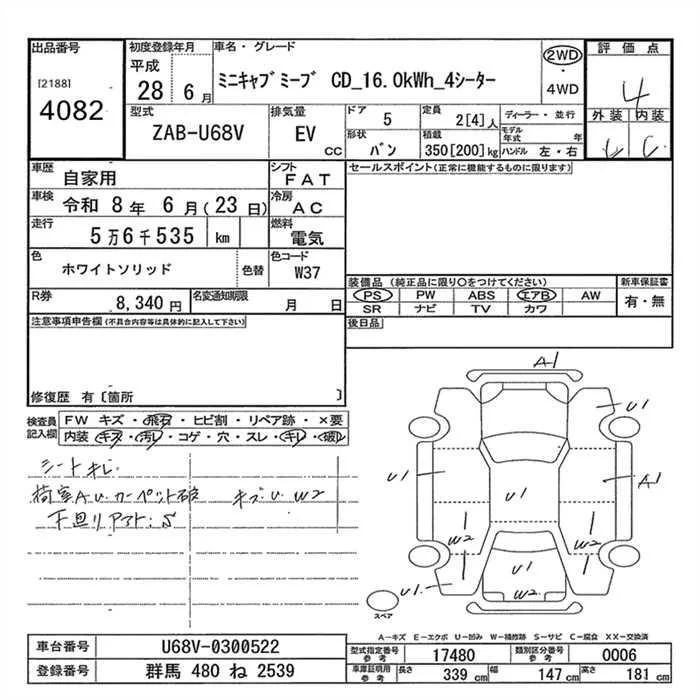 出品番号 初度登録年月 車名・グレード 評価点
[2188] 平成 2WD
4082 28 6月 ミニキャブミーブ CD_16.0kWh_4シーター ・ 4
4WD
型式 排気量 ドア 5 定員 2[4]人 ディーラー・並行 外装 内装
ZAB-U68V EV CC 形状 バン 積載 350[200]kg モデル年式 年 C
ハンドル 左・右
車歴 自家用 シフト FAT セールスポイント(正常に機能するものに限ります)
車検 令和 8年 6月(23日) 冷房 AC
走行 5万6千535 km 燃料 電気
色 ホワイトソリッド 色替 色コード W37
装備品(純正品に限り○をつけてください) 新車保証書
R券 8,340円 名変通知期限 月 日 PS PW ABS エアB AW 有・無
SR ナビ TV カワ
注意事項申告欄(不具合内容等は具体的に記入して下さい) 後日品
修復歴 有〔箇所 〕
検査員記入欄 FW キズ・飛石・ヒビ割・リペア跡・×要
内装・キズ・汚レ・コゲ・穴・スレ・キレ・破レ
シートキレ
荷室A.U.カーペット破 キズU W2
下廻りアト:S
A1
U1
U1
A1
U1
W2
W2
U1
U1
W2
スペア
A-キズ E-エクボ U-凹み W-補修跡 S-サビ C-腐食 XX-交換済
車台番号 U68V-0300522 型式指定番号 参考 17480 類別区分番号 参考 0006
登録番号 群馬 480 ね 2539 車庫証明用 参考 長さ 339 cm 幅 147 cm 高さ 181 cm